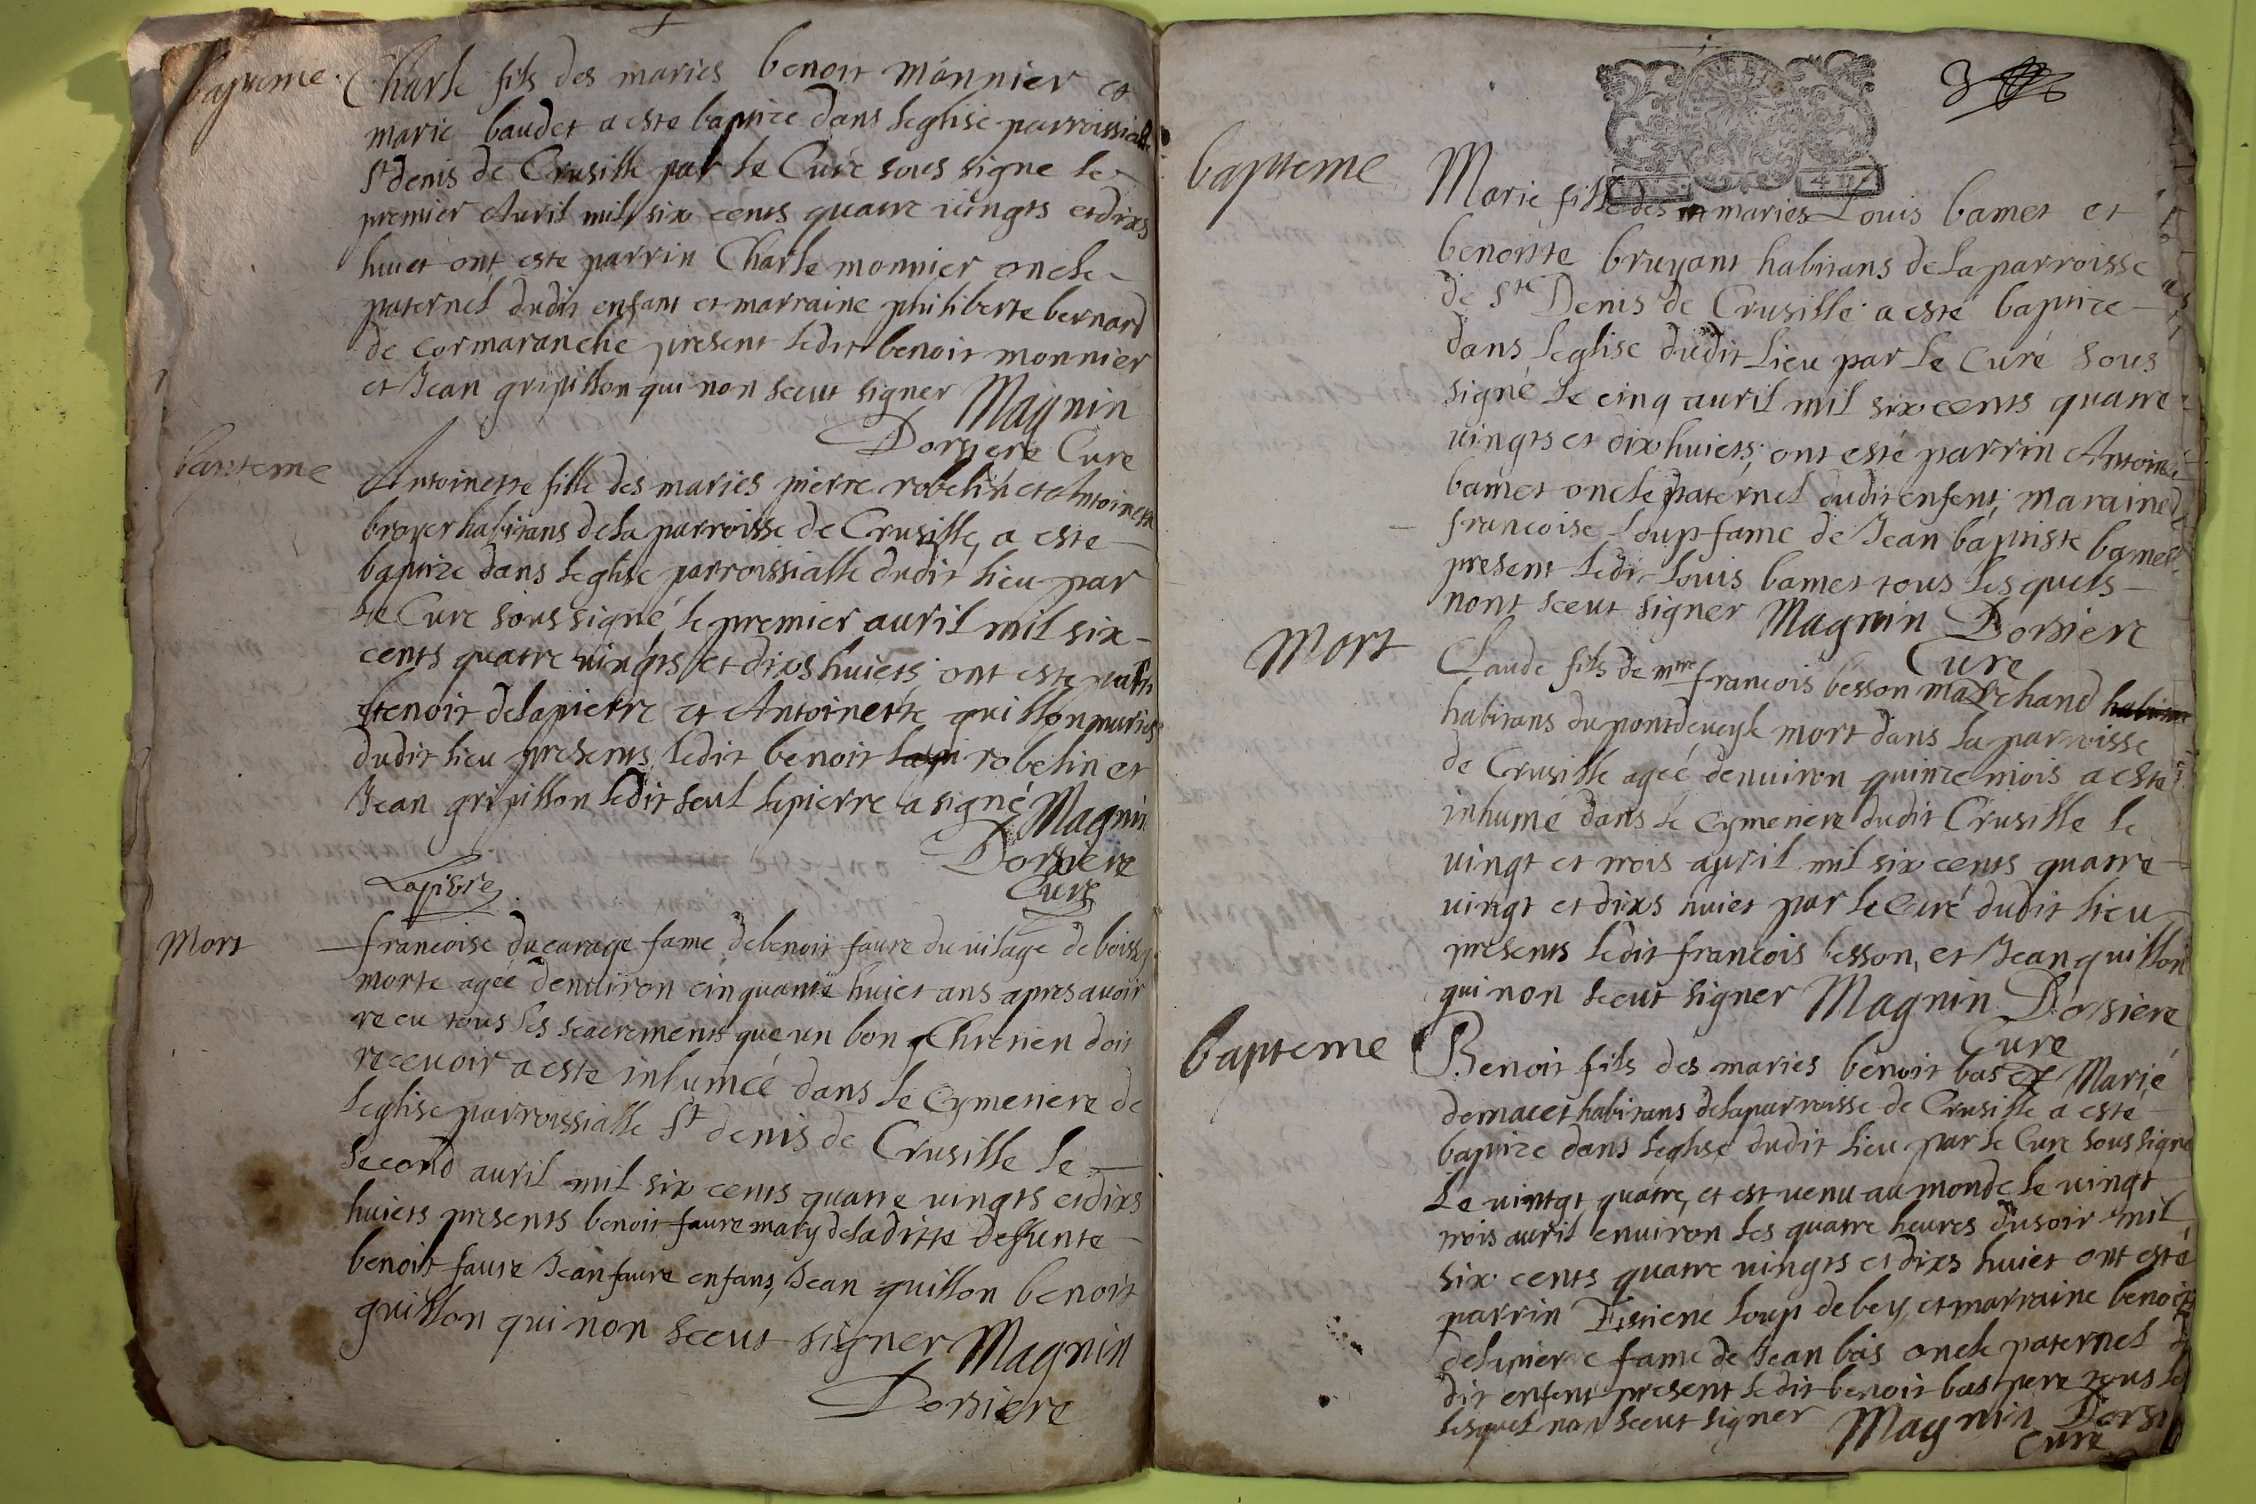 bapteme
Charle fils des maries benoit monnier et
marie baudet a este baptize dans leglise parroissialle
St denis de Crusille par le Curé sous signe le
premier Avril mil six cents quatre vingts et dixs
huict ont este parrin Charle monnier oncle
paternel dudit enfant et marraine philiberte bernard
de cormaranche present ledit benoit monnier
et Jean gripillon qui non sceut signer Magnin
Dorsiere Cure
bapteme
Antoinette fille des maries pierre robelin et Antoinette
broyer habitans de la parroisse de Crusille, a este
baptize dans leglise parroissialle dudit lieu par
le Cure sous signé, le premier auril mil six
cents quatre vingts et dixs huicts ont este parrin
benoit delapierre et Antoinette guillon maries
dudit lieu presents, ledit benoit robelin et
Jean gripillon ledit seul lapierre a signé Magnin
Dorsiere
Lapierre Cure
Mort
francoise ducarage fame de benoit faure du vilage de boissey
morte agée denuiron cinquante huict ans apres avoir
receu tous les sacrements que un bon Chretien doit
recevoir a este inhumée dans le Cymetiere de
leglise parroissialle St denis de Crusille le
second auril mil six cents quatre vingts et dixs
huicts presents benoit faure mary de la ditte defunte
benoit faure Jean faure enfans, Jean guillon benoit
guillon qui non sceut signer Magnin
Dorsiere
3
bapteme
Marie fille des maries Louis bamet et
benoite bruyant habitans de la parroisse
de St Denis de Crusille a esté baptize
dans leglise dudit lieu par le Curé sous
signé le cinq auril mil six cents quatre
vingts et dix huicts, ont esté parrin Antoine
bamet oncle paternel dudit enfent, maraine
francoise Loup fame de Jean baptiste bamet
present ledit Louis bamet tous lesquels
nont sceut signer Magnin Dorsiere
Cure
Mort
Claude fils de mtre francois besson marchand
habitans du pontdeveyle mort dans la parroisse
de Crusille ageé denuiron quinze mois a esté
inhumé dans le Cymetiere dudit Crusille le
vingt et trois auril mil six cents quatre
vingt et dixs huict par le Curé dudit lieu
presents ledit francois besson, et Jean guillon
qui non sceut signer Magnin Dorsiere
Cure
bapteme
Benoit fils des maries benoit bas et Marie
demacet habitans de la parroisse de Crusille a esté
baptize dans leglise dudit lieu par le Cure sous signe
Le vintgt quatre, et est venu au monde le vingt
trois auril environ les quatre heures du soir mil
six cents quatre vingts et dixs huict ont esté
parrin Estiene Loup de bey, et marraine benoite
delapierre fame de Jean bas oncle paternel du
dit enfent present ledit benoit bas pere tous
lesquel non sceut signer Magnin Dorsi
Cure